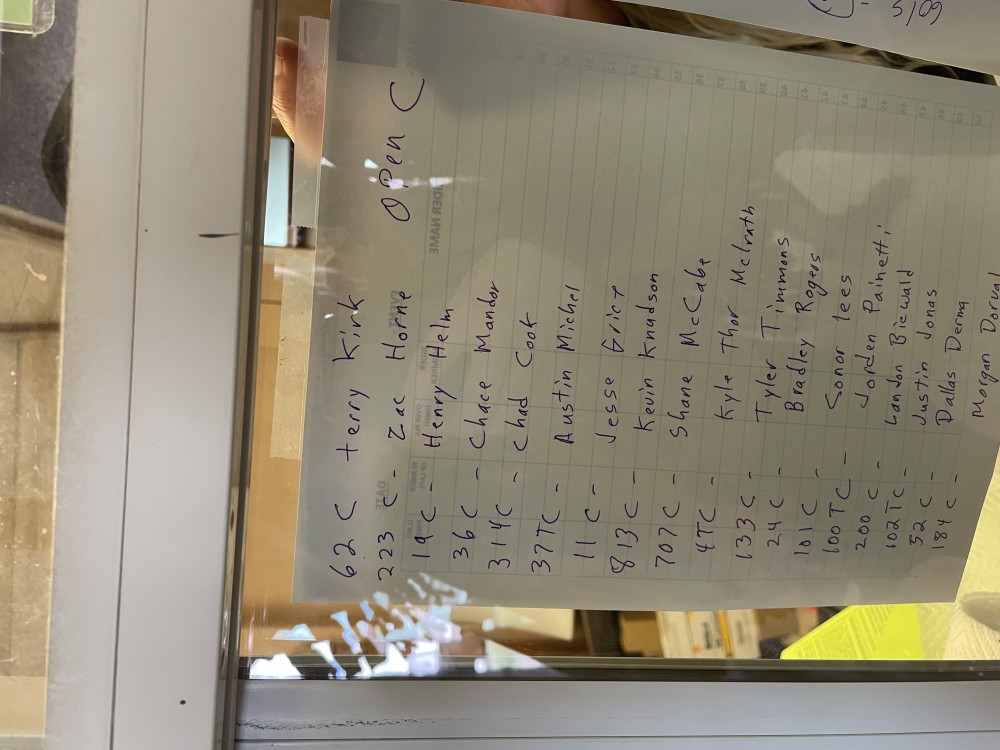 OPen C
62 C terry Kirk
223 C - Zac Horne
19 C - Henry Helm
36 C - Chace Mandor
314C - Chad Cook
37TC - Austin Michel
11 C - Jesse Grice
813 C - Kevin Knudson
707 C - Shane McCabe
4TC - Kyle Thor McIrath
133C - Tyler Timmons
24C - Bradley Rogers
101C - Conor Lees
100TC - Jorden Painetti
200 C - Landon Biewald
102TC - Justin Jonas
52 C - Dallas Derma
184 C - Morgan Dorval